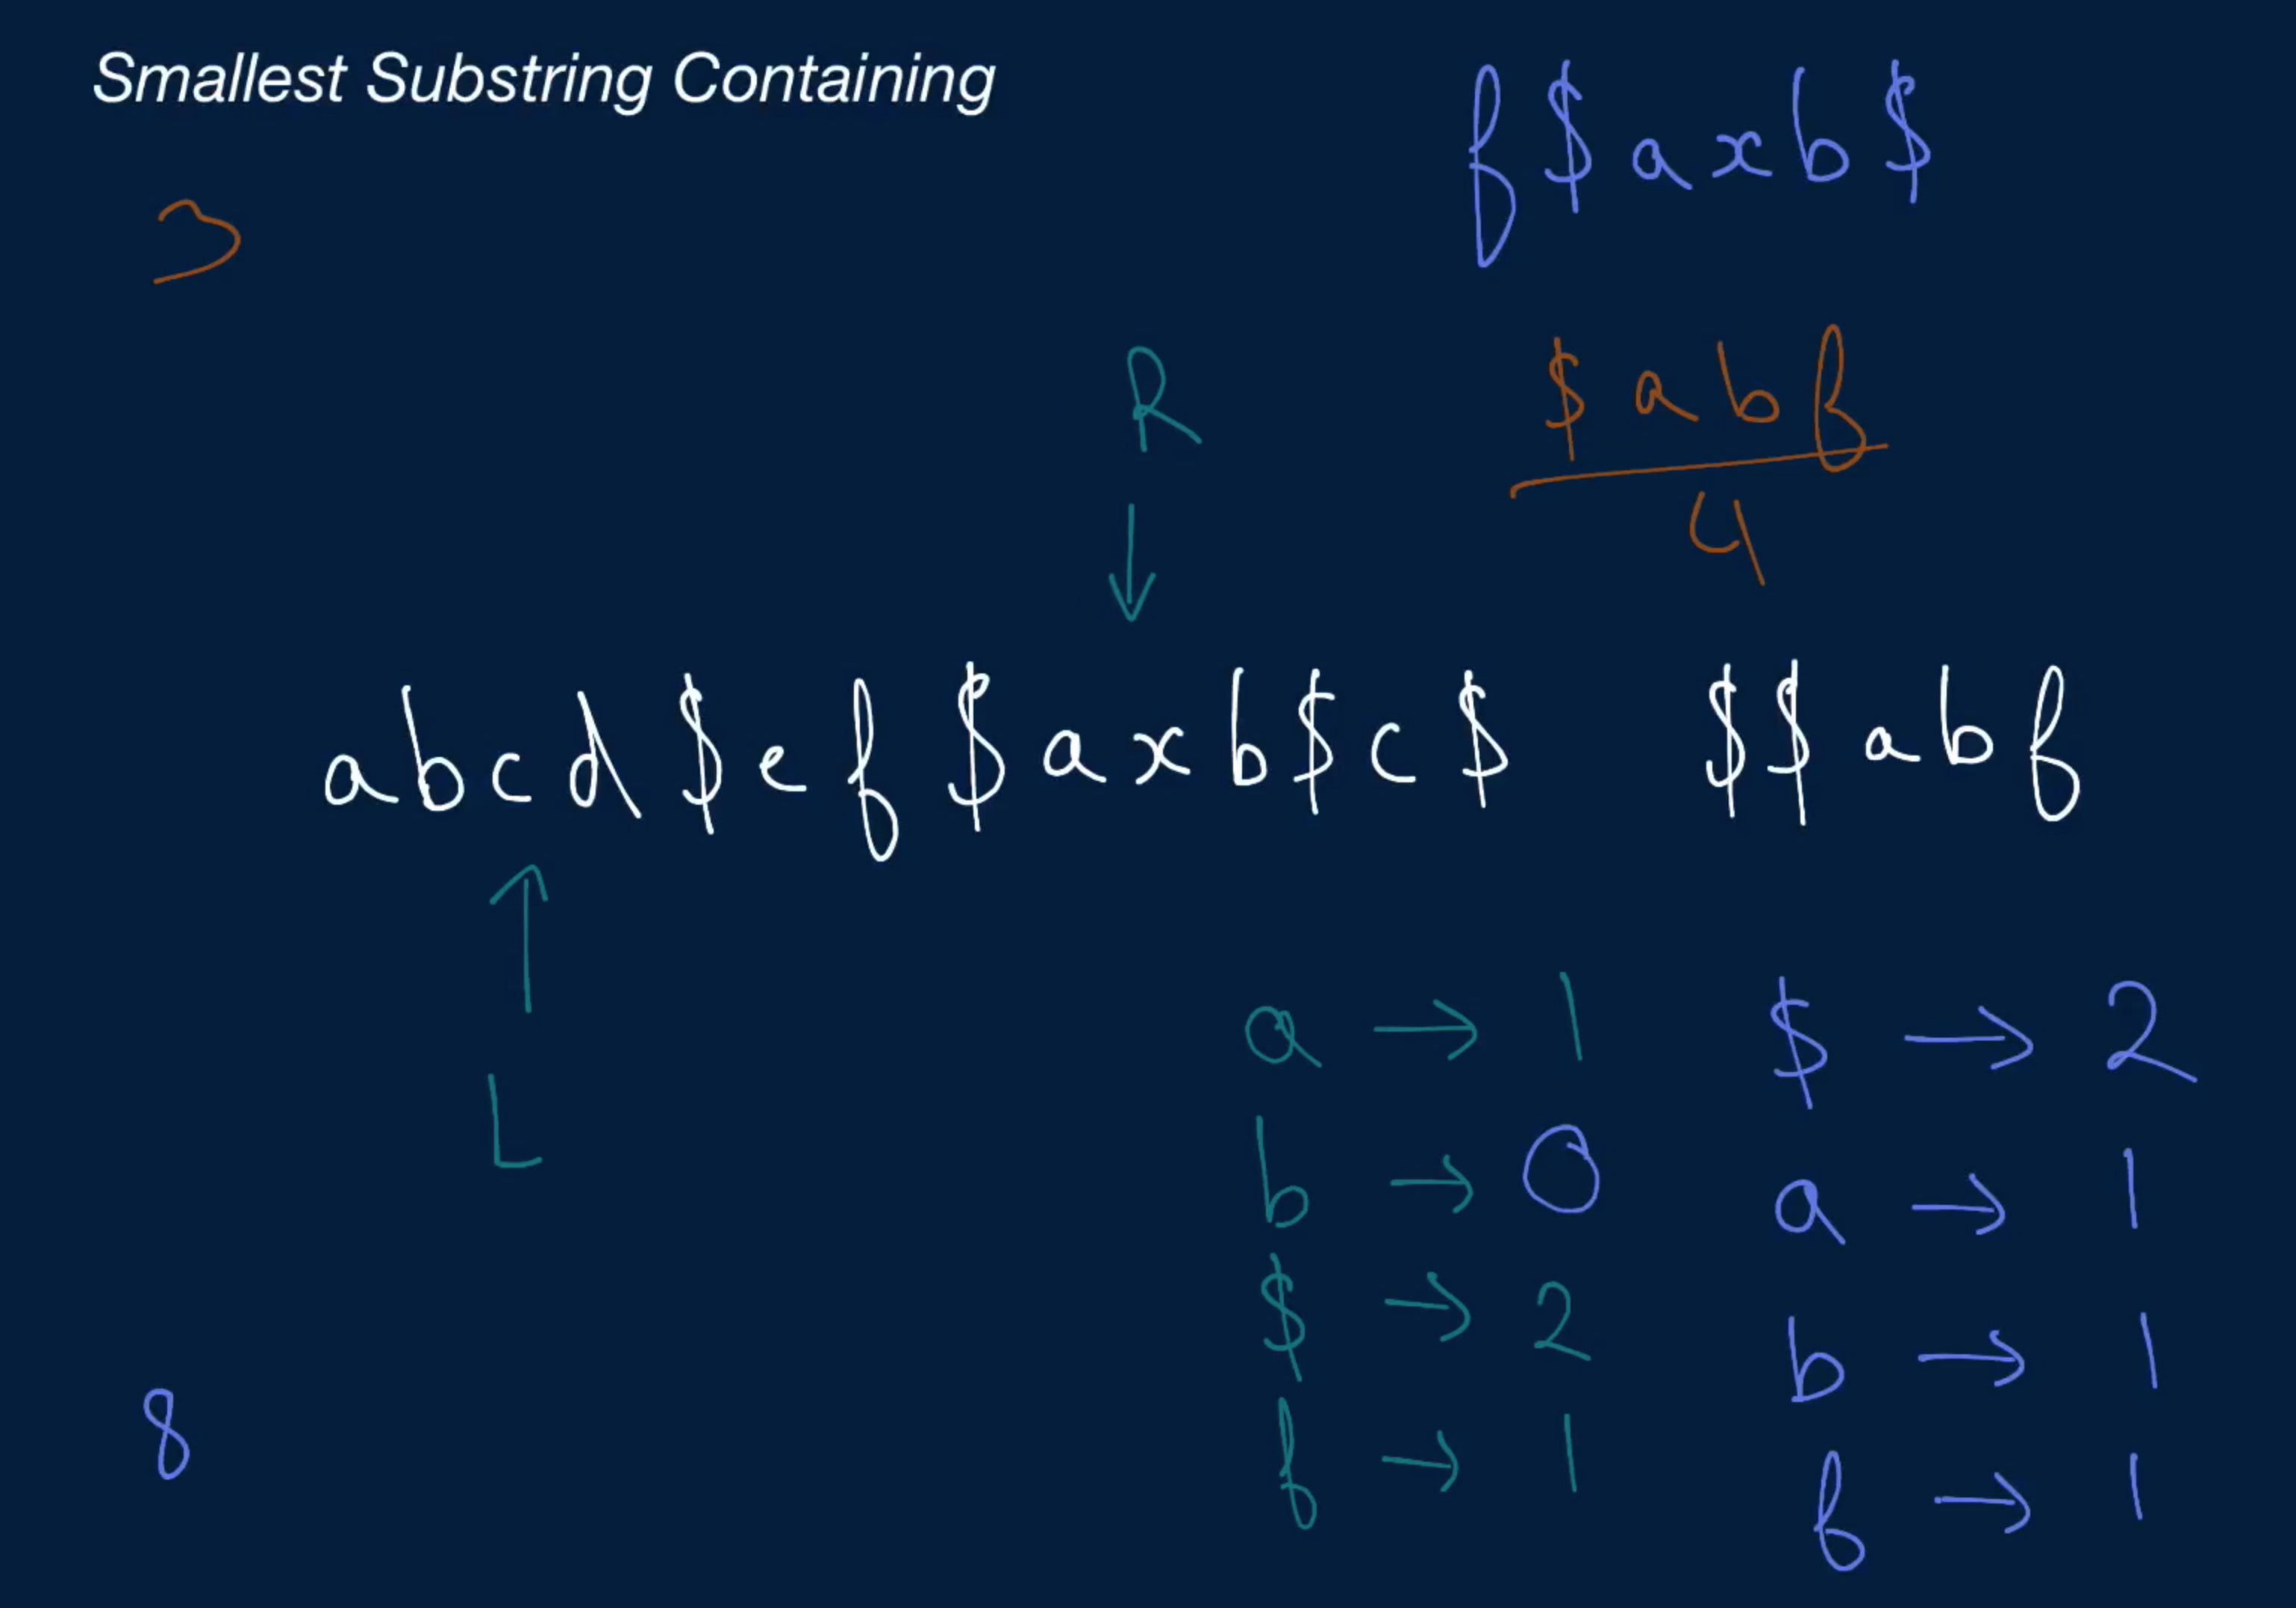 Smallest Substring Containing
f$axb$
3
R
$abf
4
abcd$ef$axb$c$ $$abf
L
a → 1 $ → 2
b → 0 a → 1
$ → 2 b → 1
f → 1 f → 1
8